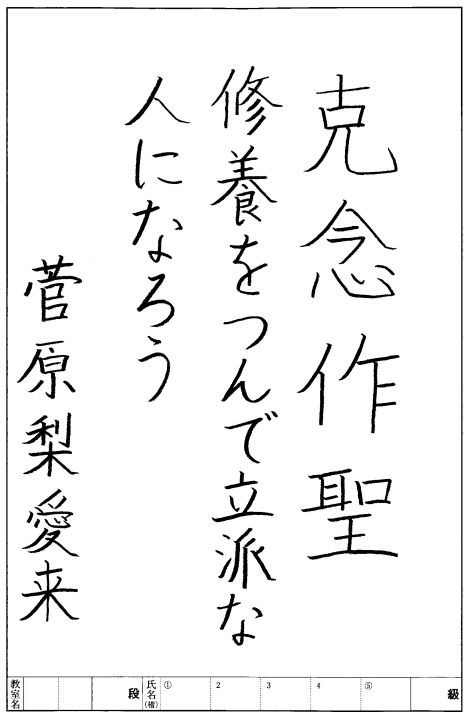 克念作聖
修養をつんで立派な
人になろう
菅原梨愛来
級
⑤
4
3
2
①
氏名(楷)
段
教室名